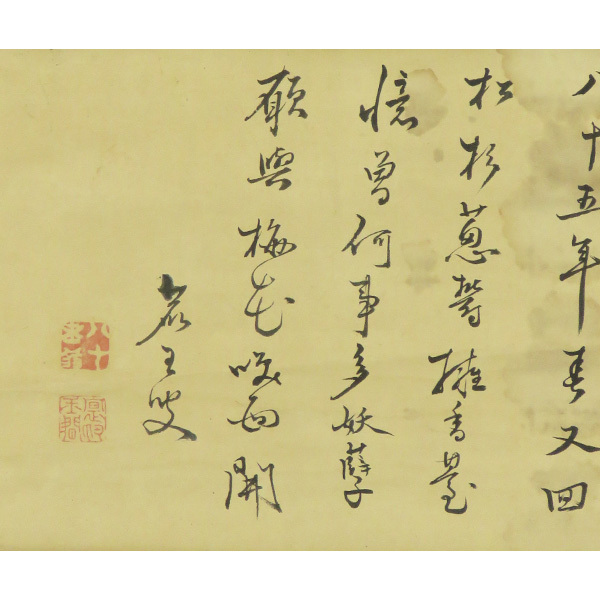 八十五年春又回
松杉葱鬱擁香臺
憶曽何事多妖孽
願與梅花咲面開
八十